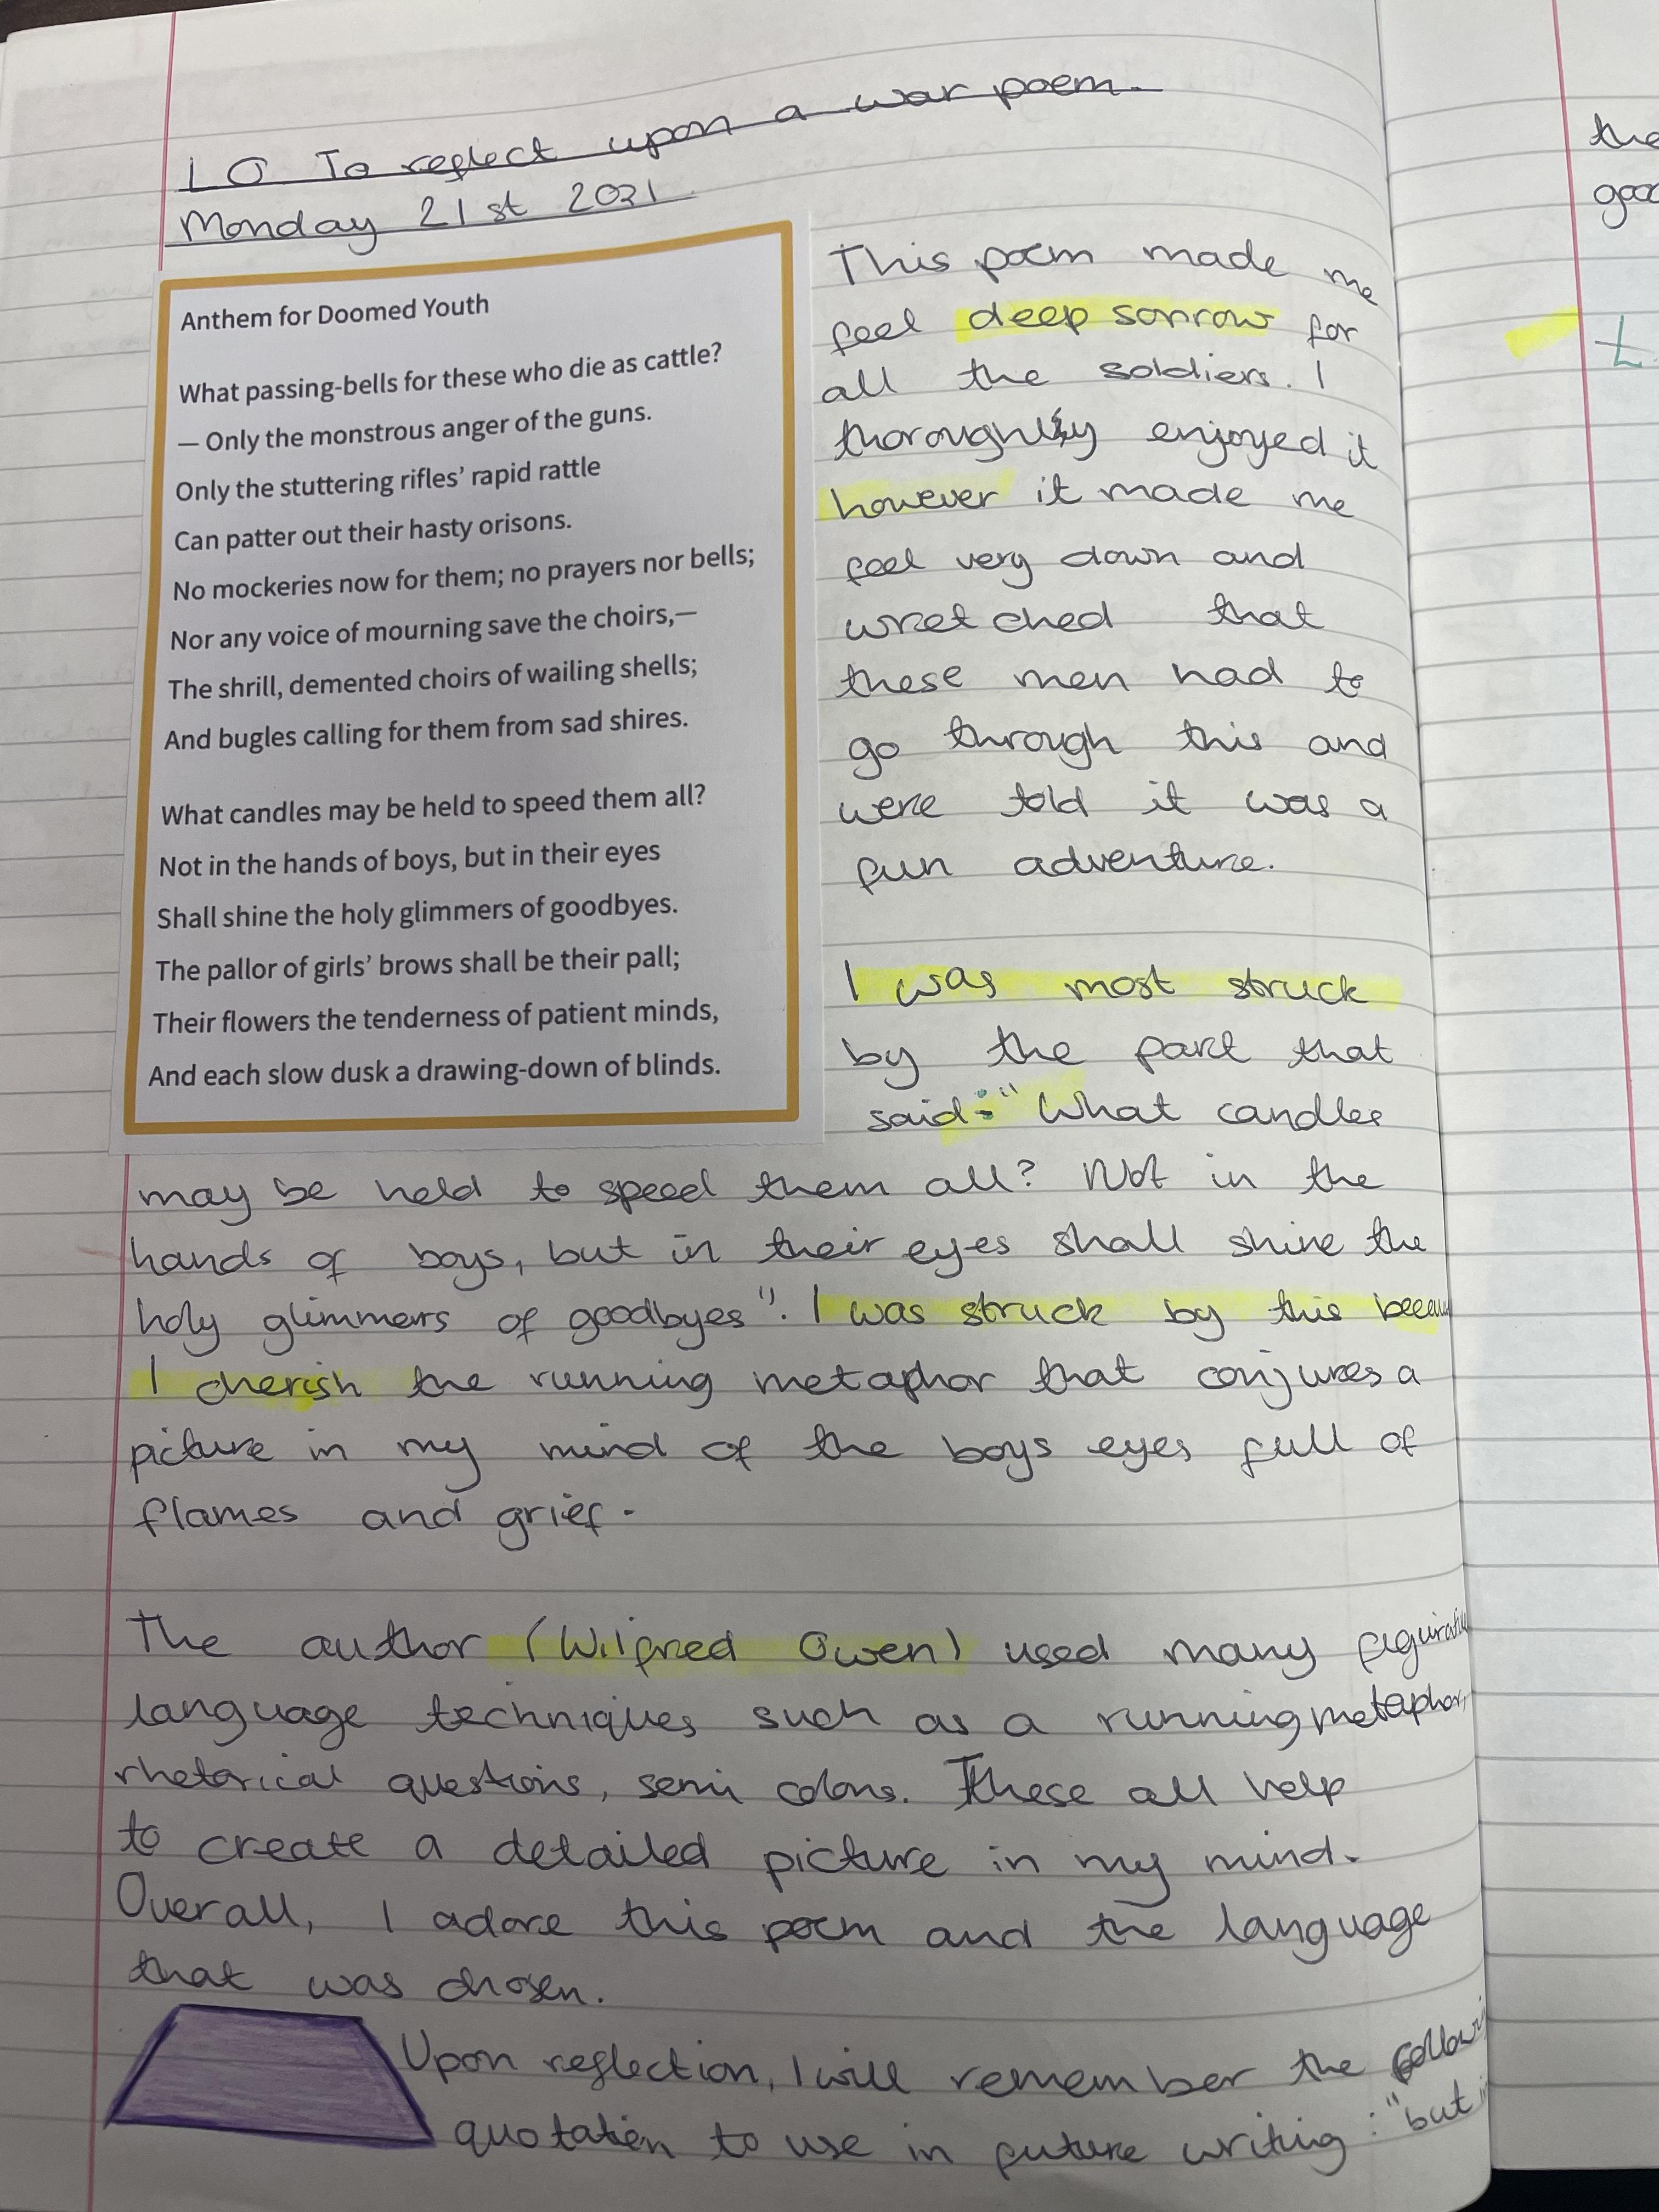 LO To reflect upon a war poem.
Monday 21st 2021
Anthem for Doomed Youth
What passing-bells for these who die as cattle?
— Only the monstrous anger of the guns.
Only the stuttering rifles' rapid rattle
Can patter out their hasty orisons.
No mockeries now for them; no prayers nor bells;
Nor any voice of mourning save the choirs,—
The shrill, demented choirs of wailing shells;
And bugles calling for them from sad shires.
What candles may be held to speed them all?
Not in the hands of boys, but in their eyes
Shall shine the holy glimmers of goodbyes.
The pallor of girls' brows shall be their pall;
Their flowers the tenderness of patient minds,
And each slow dusk a drawing-down of blinds.
This poem made me
feel deep sorrow for
all the soldiers. I
thoroughly enjoyed it
however it made me
feel very down and
wretched that
these men had to
go through this and
were told it was a
fun adventure.
I was most struck
by the part that
said: "What candles
may be held to speed them all? Not in the
hands of boys, but in their eyes shall shine the
holy glimmers of goodbyes". I was struck by this
I cherish the running metaphor that conjures a
picture in my mind of the boys eyes full of
flames and grief.
The author (Wilfred Owen) used many
language techniques such as a running metaphor,
rhetorical questions, semi colons. These all help
to create a detailed picture in my mind.
Overall, I adore this poem and the language
that was chosen.
Upon reflection, I will remember the
quotation to use in future writing: "but
the